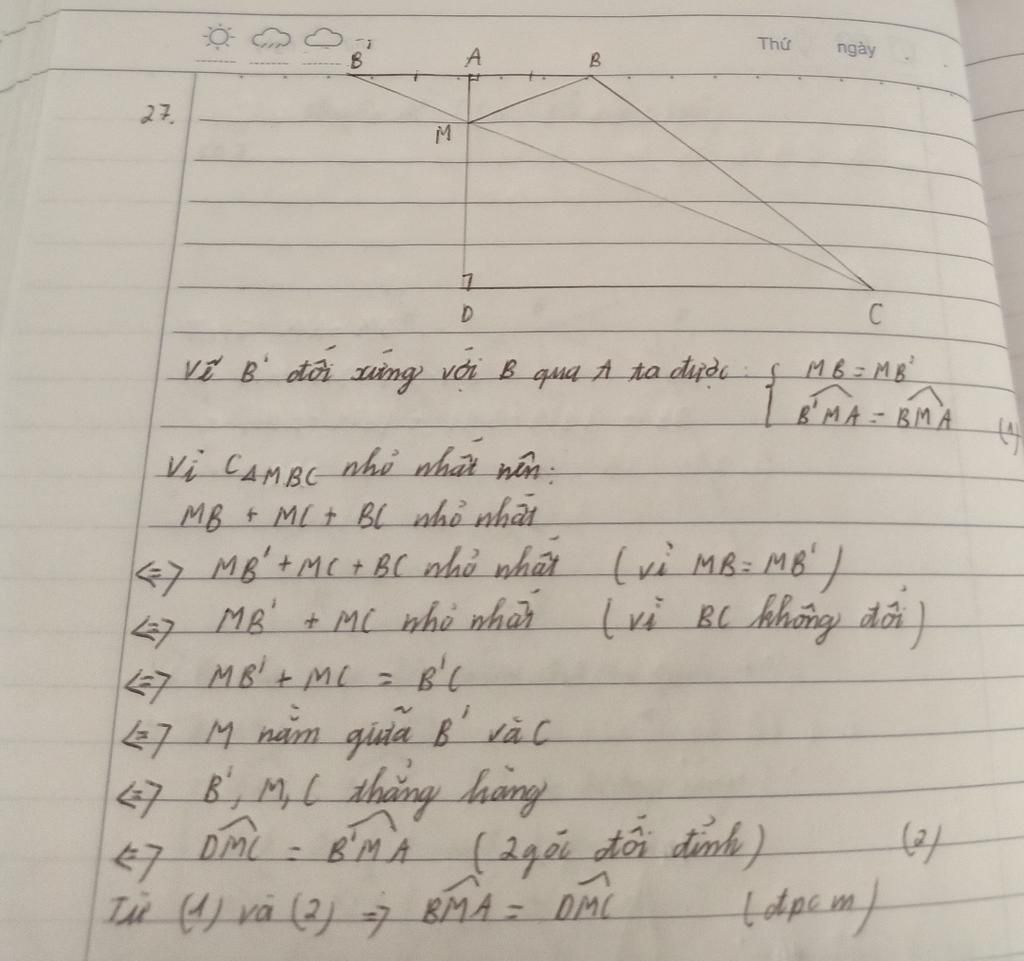 Thứ ngày
B' A B
27.
M
D C
Vẽ B' đối xứng với B qua A ta được: { MB = MB'
B'MA = BMA (1)
Vì CΔMBC nhỏ nhất nên:
MB + MC + BC nhỏ nhất
<=> MB' + MC + BC nhỏ nhất (vì MB = MB')
<=> MB' + MC nhỏ nhất (vì BC không đổi)
<=> MB' + MC = B'C
<=> M nằm giữa B' và C
<=> B', M, C thẳng hàng
<=> DMC = B'MA (2 góc đối đỉnh) (2)
Từ (1) và (2) => BMA = DMC (đpcm)